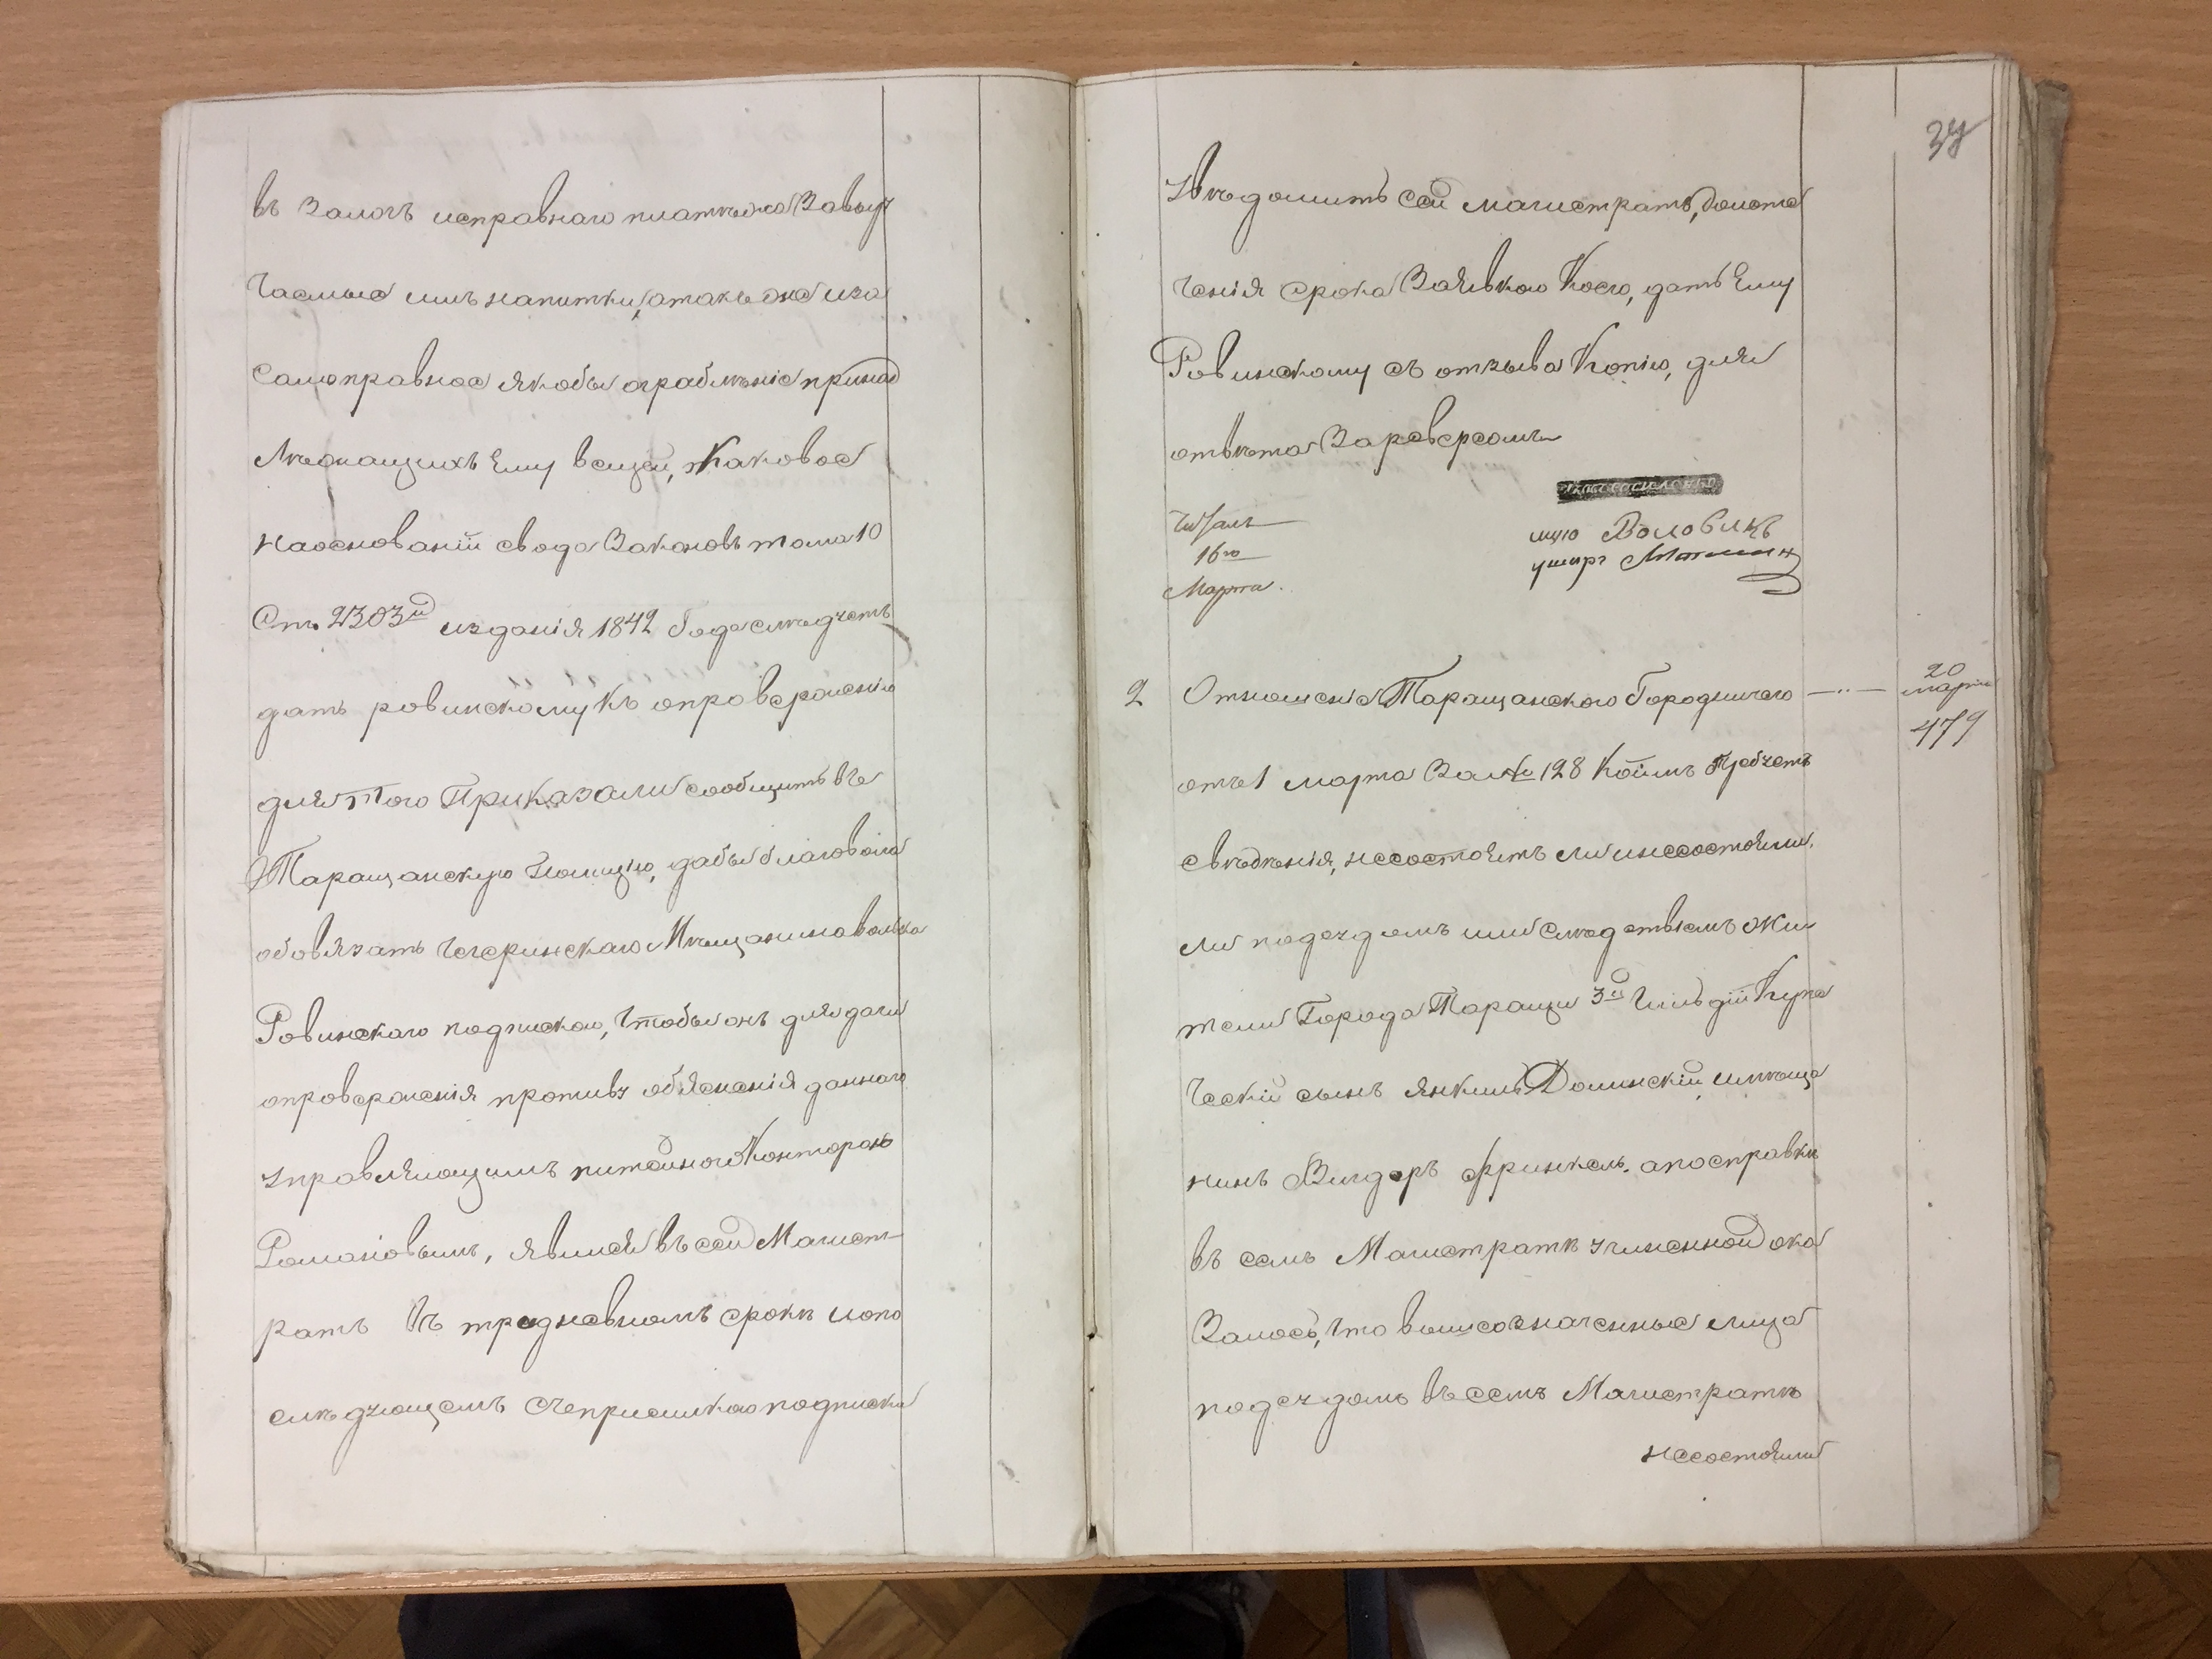 въ залогъ исправнаго платѣжа завыу
чаемые имъ напитки, атакъ же иза
самоправное якобы ограбленіе принад
лѣжащихъ ему вещей, каковое
наоснованіи свода Законовъ тома 10
Ст. 2303й изданія 1842 Года слѣдуетъ
дать ровинскому къ опроверженію
для того Приказали сообщить въ
Таращанскую полицію, дабы благоволи
обовязать Чегеринскаго Мѣщанина волька
Ровинскаго подпискою, чтобы онъ для дачи
опроверженія противу обясненія даннаго
управляющимъ питейною Конторою
Романовымъ, явился въ сей Магист-
ратъ въ тредневномъ срокѣ ипо
слѣдующемъ съприсилкою подписки
37
увѣдомить сей магистратъ, аопоте
ченія срока заявкою коего, дать Ему
Ровинскому съ отзыва Копію, для
отвѣта Зареверсомъ
Читалъ
16го
Марта.
Воловикъ
2 Отношеніе Таращанского Городничего —..— 20
марта
479
отъ 1 марта За № 128 коимъ требуетъ
свѣдѣнія, несостоятъ ли инесостояли
ли подсудомъ или слѣдствіемъ жи
тели Города Таращи 3й Гильдіи Купе
ческій сынъ Янкиль Долинскій имѣща
нинъ Вигдоръ Френкель. апосправки
въ семъ Магистратѣ учиненной ока
залось, что вышеозначенные лица
подсудомъ въ семъ Магистратѣ
несостояли